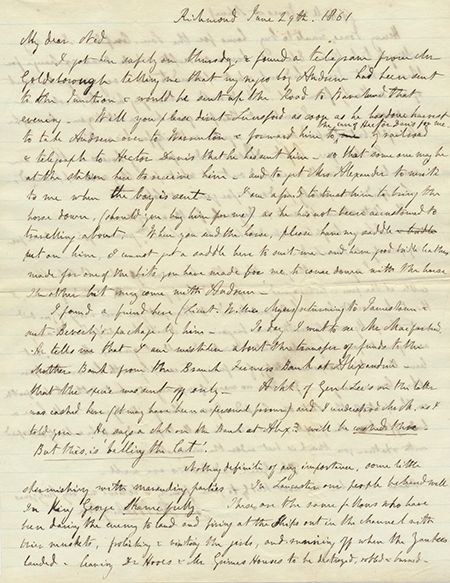 Richmond June 29th. 1861
My dear Ned
I got here safely on Thursday, & found a telegram from Mr
Goldsborough telling me that my negro boy Andrew had been sent
to the Junction & would be sent up the Road to that
evening - Will you please direct as soon as he has done harvest
to take Andrew over to Warrenton & forward him to me by railroad
& telegraph to Hector Davis that he has sent him - so that some one may be
at the station there to receive him - and to get Mrs Alexander to write
to me when the boy is sent - I am afraid to trust him to bring the
horse down, (should you buy him for me) as he has not been accustomed to
travelling about. When you send the horse, please have my saddle
put on him, I cannot get a saddle here to suit me - and have good bridle leathers
made for one of the bits you have made for me to come down with the horse
The other bit may come with Andrew -
I found a friend here (Lieut. Willie Myers) returning to Jamestown &
sent Beverly's package by him - To day I went to see Mr
He tells me that I am mistaken about the transfer of funds to the
Mother Bank from the Branch Bank at Alexandria
that the specie was sent off only - A chk. of Genl Lee's on the latter
was cashed here (it may have been a personal favour) and I understood as I
told you - He says a chk on the Bank at Alexa. will be
But this is 'belling the Cat'.
Nothing definite of any importance, some little
skirmishing with marauding parties - In Lancaster our people behaved well
In King George shamefully - These are the same fellows who have
been daring the enemy to land and firing at the ships out in the channel with
their muskets, frolicking & visiting the girls, and running off when the Yankees
landed - leaving Dr Hooes & Mr Grimes Houses to be destroyed, robbed & burned -